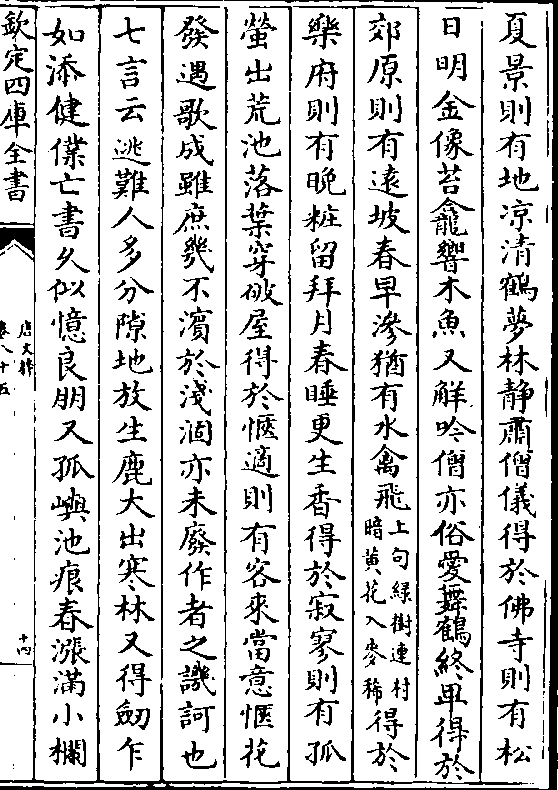 夏景則有地凉清鶴夢林静肅僧儀得於佛寺則有松
日明金像苔龕響木魚又解吟僧亦俗愛舞鶴終卑得於
郊原則有遠坡春早滲猶有水禽飛上句緑樹連村暗黄花入麥稀得於
樂府則有晚粧留拜月春睡更生香得於寂寥則有孤
螢出荒池落葉穿破屋得於愜適則有客來當意愜花
發遇歌成雖庶幾不濱於淺涸亦未廢作者之譏訶也
七言云逃難人多分隙地放生鹿大出寒林又得劒乍
如添健僕亡書久似憶良朋又孤嶼池痕春漲滿小欄
欽定四庫全書
唐文粹
卷八十五
十四